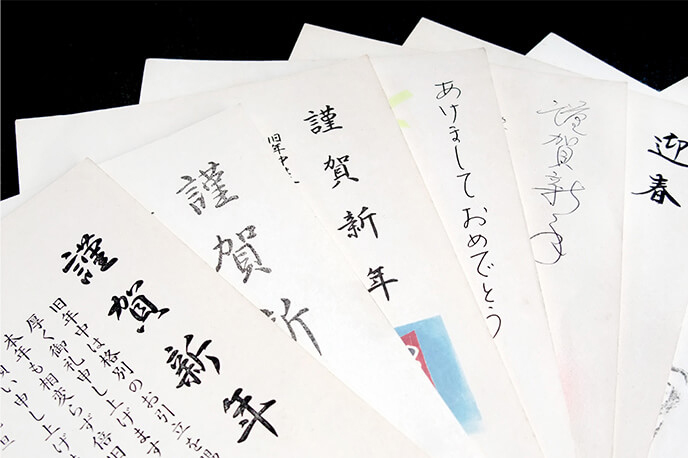 謹賀新年
旧年中は格別のお引立を
厚く御礼申し上げます
本年も相変らず倍旧
い申し上
旦
謹賀新
謹賀新年
旧年中
あけましておめでとう
謹賀新年
迎春